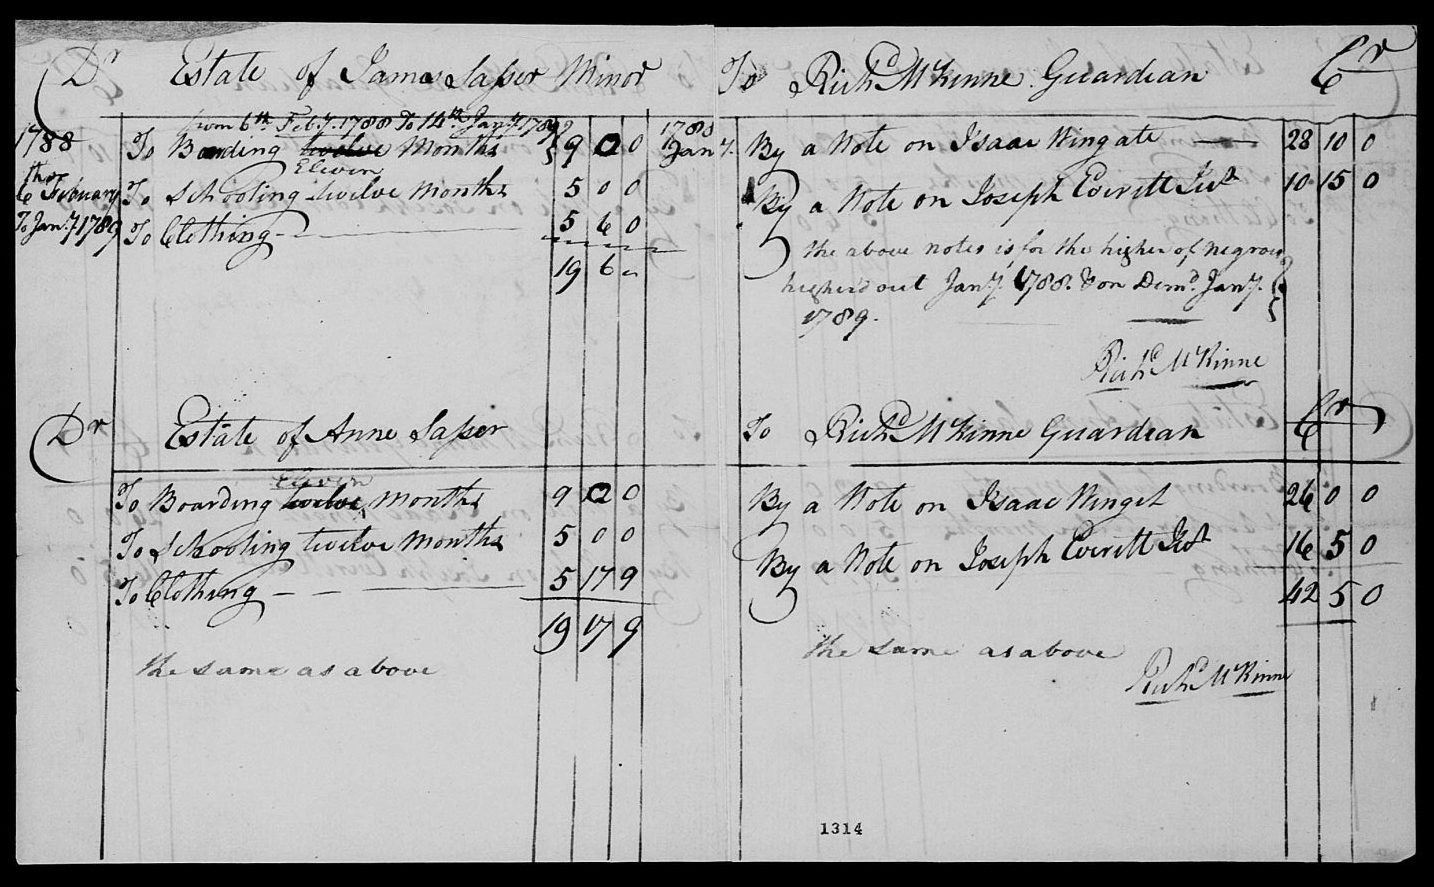 Dr Estate of James Sasser Minor To Richd McKinne Guardian Cr
from 6th Feby. 1788 To 14th Jany. 1789
1788 To Boarding twelve Months 9 0 0 1788 Jany. By a Note on Isaac Wingate 28 10 0
Eleven
6 February To Schooling twelve Months 5 0 0 By a Note on Joseph Everitt 10 15 0
To Jany 1789 To Clothing 5 6 0
the above notes is for the higher of negroes
19 6 0
higherd out Jany. 1788. & on Demd. Jany.
1789.
Richd McKinne
Dr Estate of Anne Sasser To Richd McKinne Guardian Cr
Eleven
To Boarding twelve Months 9 0 0 By a Note on Isaac Winget 26 0 0
To Schooling twelve Months 5 0 0 By a Note on Joseph Everitt 16 5 0
To Clothing 5 17 9 42 5 0
19 17 9
the same as above the same as above
Richd McKinne
1314